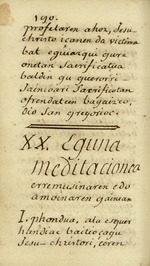 190.
profetaren ahoz, Jesu-
christo içanen da victima
bat eguiazqui gure
onetan Sacrificatua
baldin gu guerorri
Saincoari Sacrifiotan
ofrendatcen bagaizco,
dio San gregorioc.
XX. Eguna
meditacionea
erremusinaren edo
amoinaren gainean
I. phondua, ala esquer
handiac baitioçagu
Jesu-christori, ceren